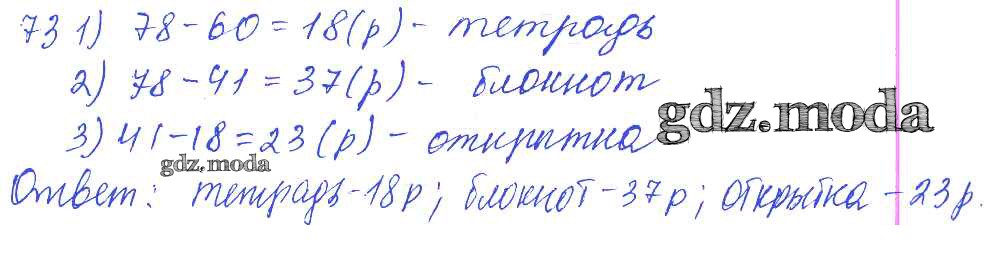 73 1) 78-60=18(р)- тетрадь
2) 78-41=37(р)- блокнот
gdz.moda
3) 41-18=23(р)- открытка
gdz.moda
Ответ: тетрадь-18р; блокнот-37р; открытка-23р.